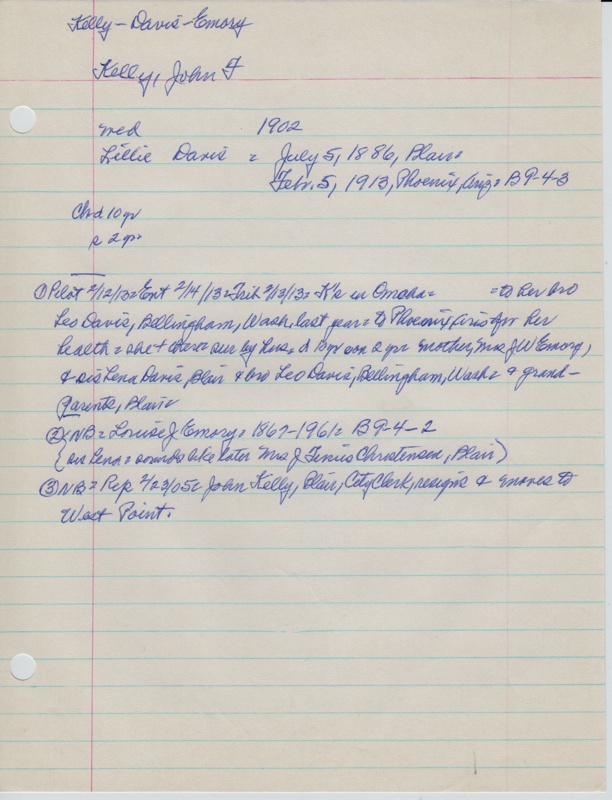 Kelly - Davis - Emory
Kelly, John F
med 1902
Lillie Davis = July 5, 1886, Blair =
Febr. 5, 1913, Phoenix, Ariz = B9-4-3
Chrd 10 yr
2 yr =
① Pilot 2/12/13 = Ent 2/14/13 = Trib 2/13/13 = K's in Omaha = = to her bro
Leo Davis, Bellingham, Wash. last year = to Phoenix, Ariz for her
health = she + there = sur by hus = d 10 yr son 2 yr = mother, Mrs J W Emory,
& sis Lena Davis, Blair & bro Leo Davis, Bellingham, Wash = & grand-
parents, Blair =
② NB = Louise J Emory = 1867-1961 = B9-4-2
(on Lena = sounds like later Mrs J Tenius Christensen, Blair)
③ NB = Rep 2/23/05 = John Kelly, Blair, City Clerk, resigns & moves to
West Point.